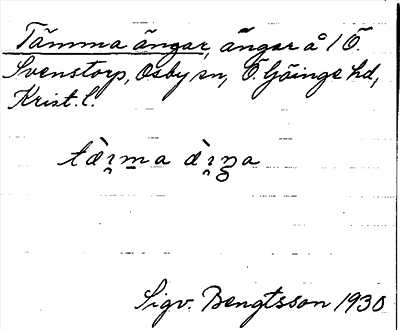 Tämma ängar, ängar å 1 Ö.
Svenstorp, Osby sn, Ö. Göinge hd,
Krist. l.
Sigv. Bengtsson 1930